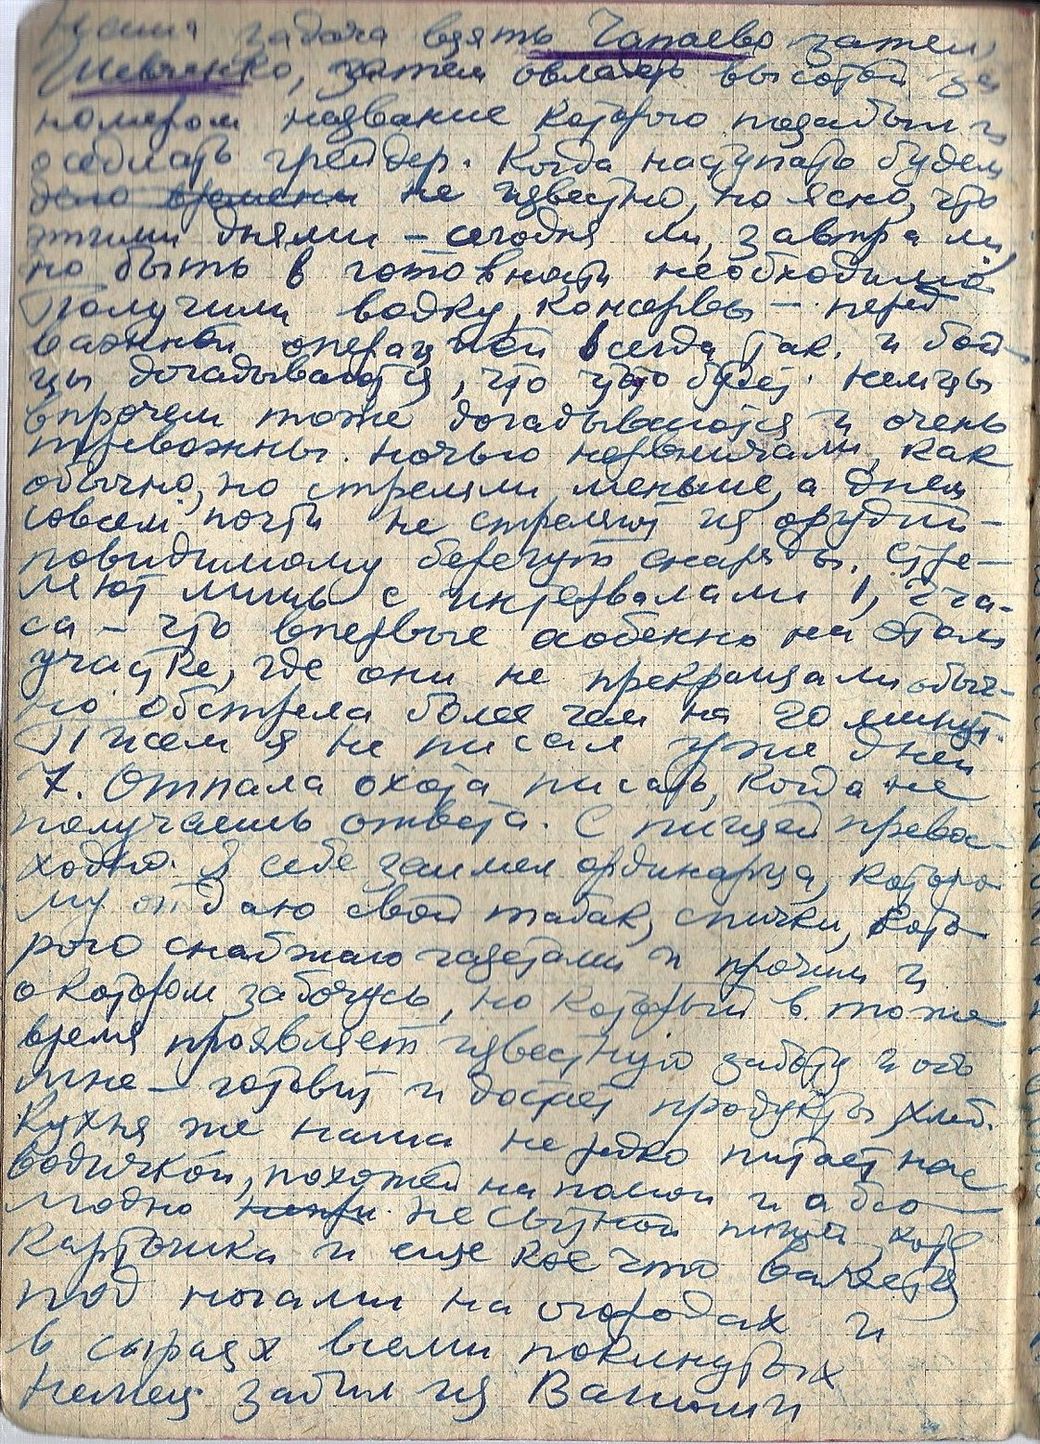 Наша задача взять Чапаево затем
Шевченко, затем овладеть высотой за
номером название которого позабыл и
оседлать грейдер. Когда наступать будем
дело времени не известно, но ясно, что
этими днями – сегодня ли, завтра ли,
но быть в готовности необходимо.
Получили водку, консервы – перед
важной операцией всегда так. и бой-
цы догадываются, что что-то будет. Немцы
впрочем тоже догадываются и очень
тревожны. Ночью нервничали, как
обычно, но стреляли меньше, а днем
совсем почти не стреляют из орудий –
повидимому берегут снаряды. Стре-
ляют лишь с интервалами 1, 2 ча-
са – что впервые особенно на этом
участке, где они не прекращали обыч-
но обстрела более чем на 20 минут.
Писем я не писал уже дней
7. Отпала охота писать, когда не
получаешь ответа. С пищей превос-
ходно. Я себе заимел ординарца, которо-
му отдаю свой табак, спички, кото-
рого снабжаю газетами и прочим и
о котором забочусь, но который в тоже
время проявляет известную заботу и обо
мне – готовит и достает продукты, хлеб.
Кухня же наша нередко питает нас
водичкой, похожей на помои и абсо-
лютно не сытной пищей, хотя
картошка и еще кое что валяется
под ногами на огородах и
в сараях всеми покинутых
Немец забил из Ванюши